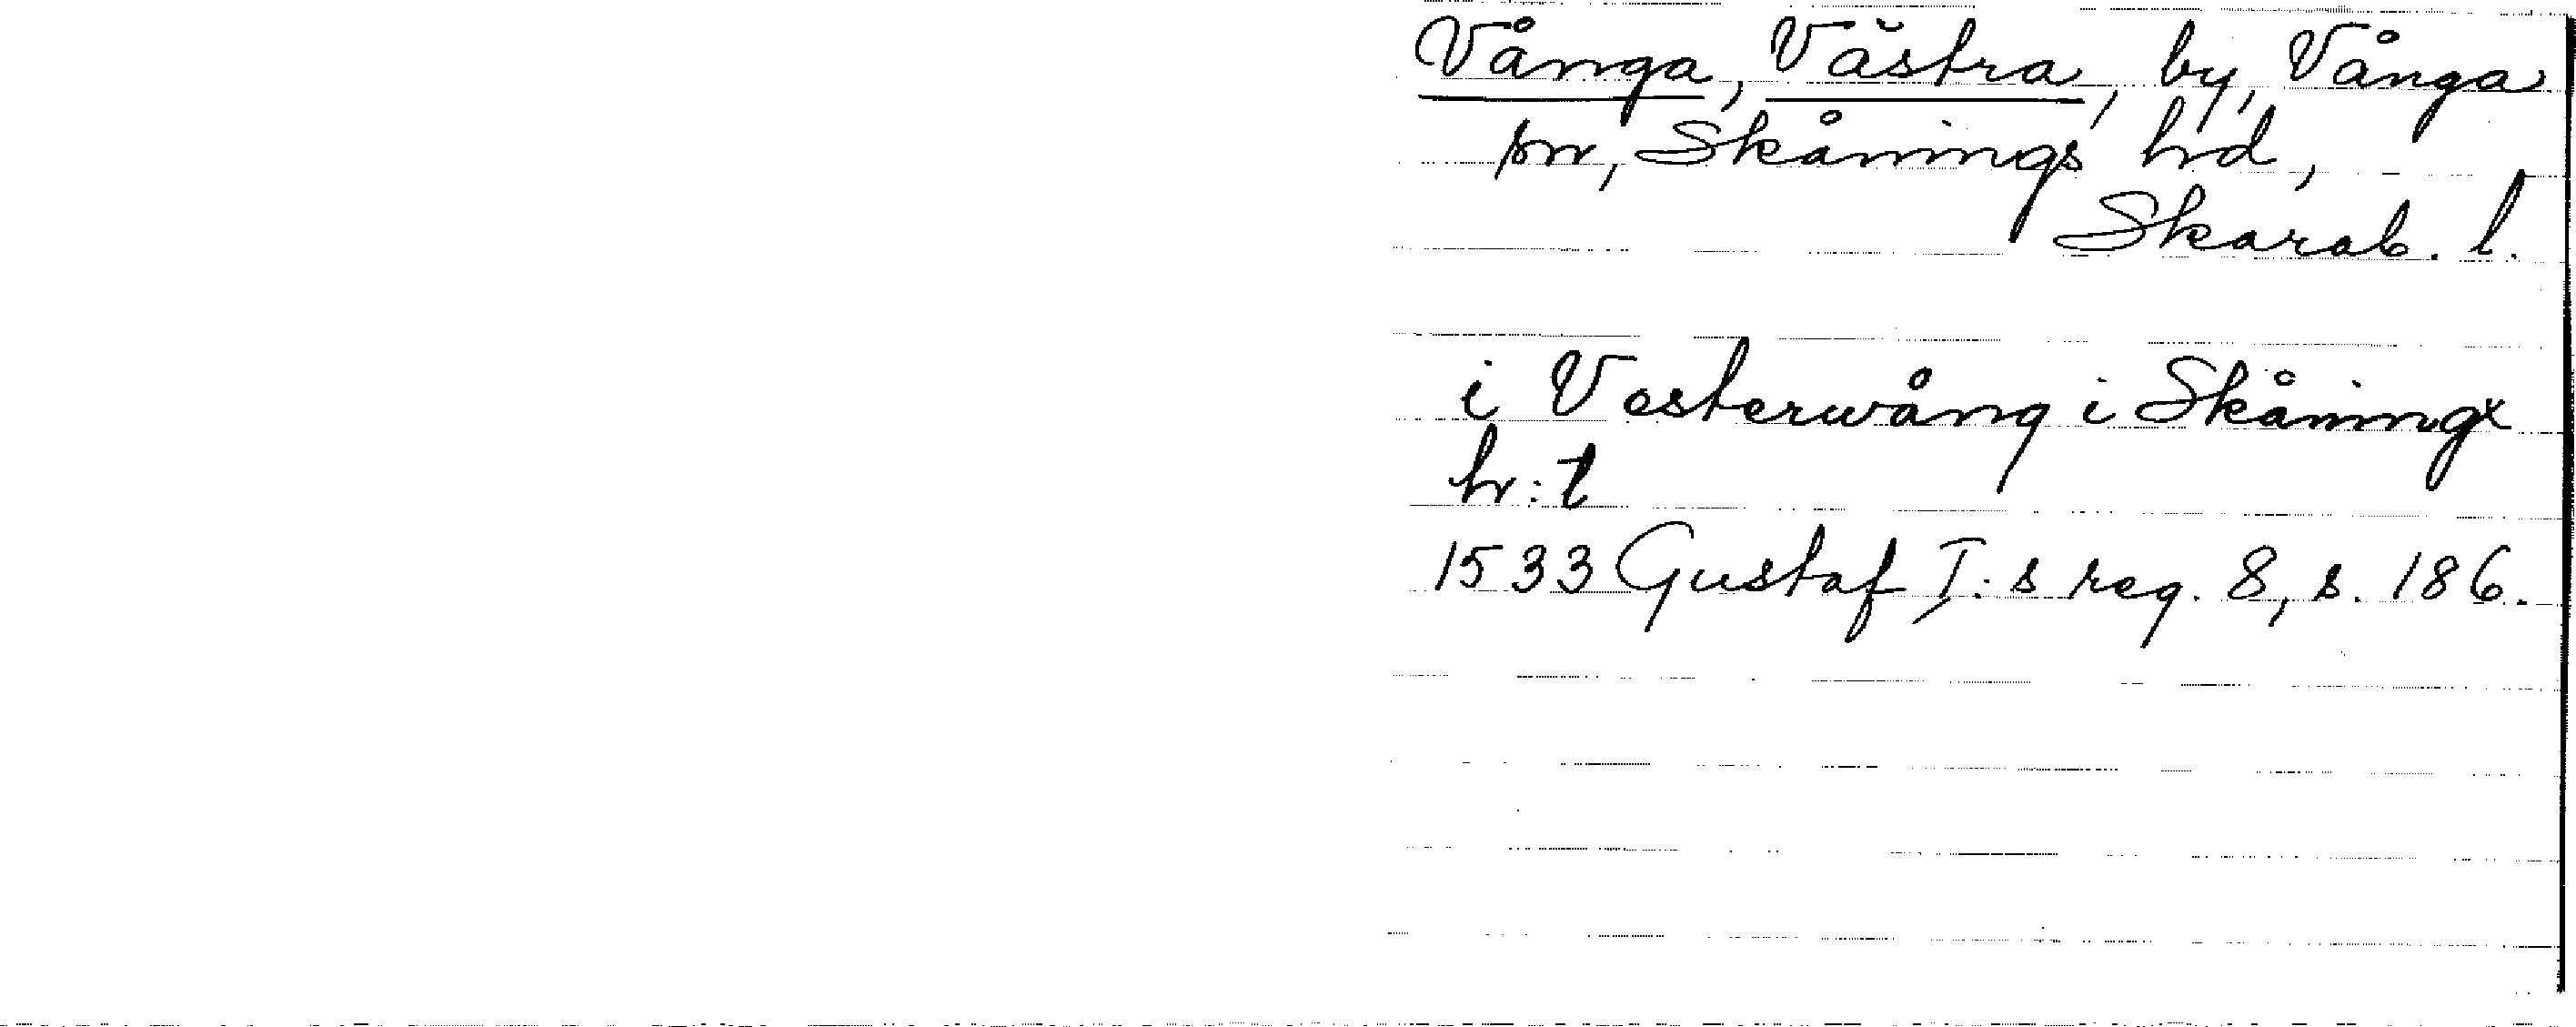 Vånga, Västra, by, Vånga
sn, Skånings hd,
Skarab. l.
i Vesterwång i Skåningx
hr:t
1533 Gustaf I:s reg. 8, s. 186.